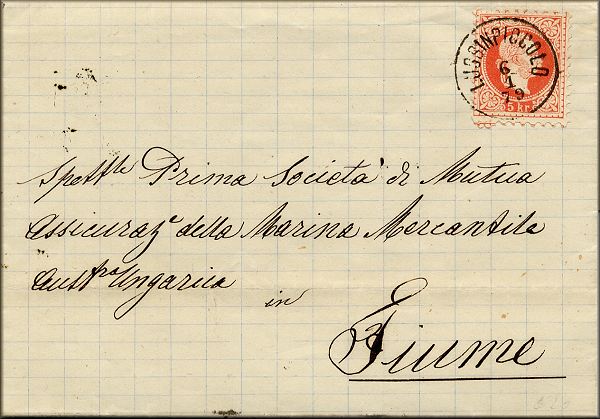 LUSSINPICCOLO
6
1
79
5 kr.
Spettle Prima Società di Mutua
Assicuraz. della Marina Mercantile
Austro Ungarica
in
Fiume